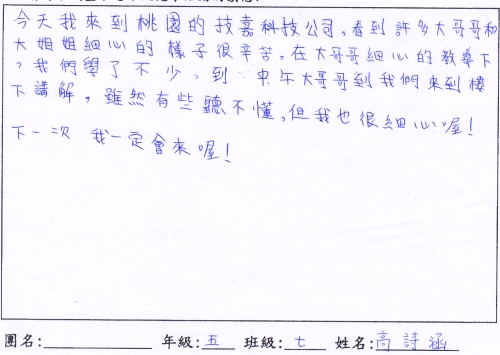 今天我來到桃園的技嘉科技公司,看到許多大哥哥和
大姐姐細心的樣子很辛苦。在大哥哥細心的教導下
,我們學了不少,到中午大哥哥到我們來到樓
下講解。雖然有些聽不懂,但我也很細心喔!
下一次 我一定會來喔!
團名: 年級:五 班級:七 姓名:高詩涵